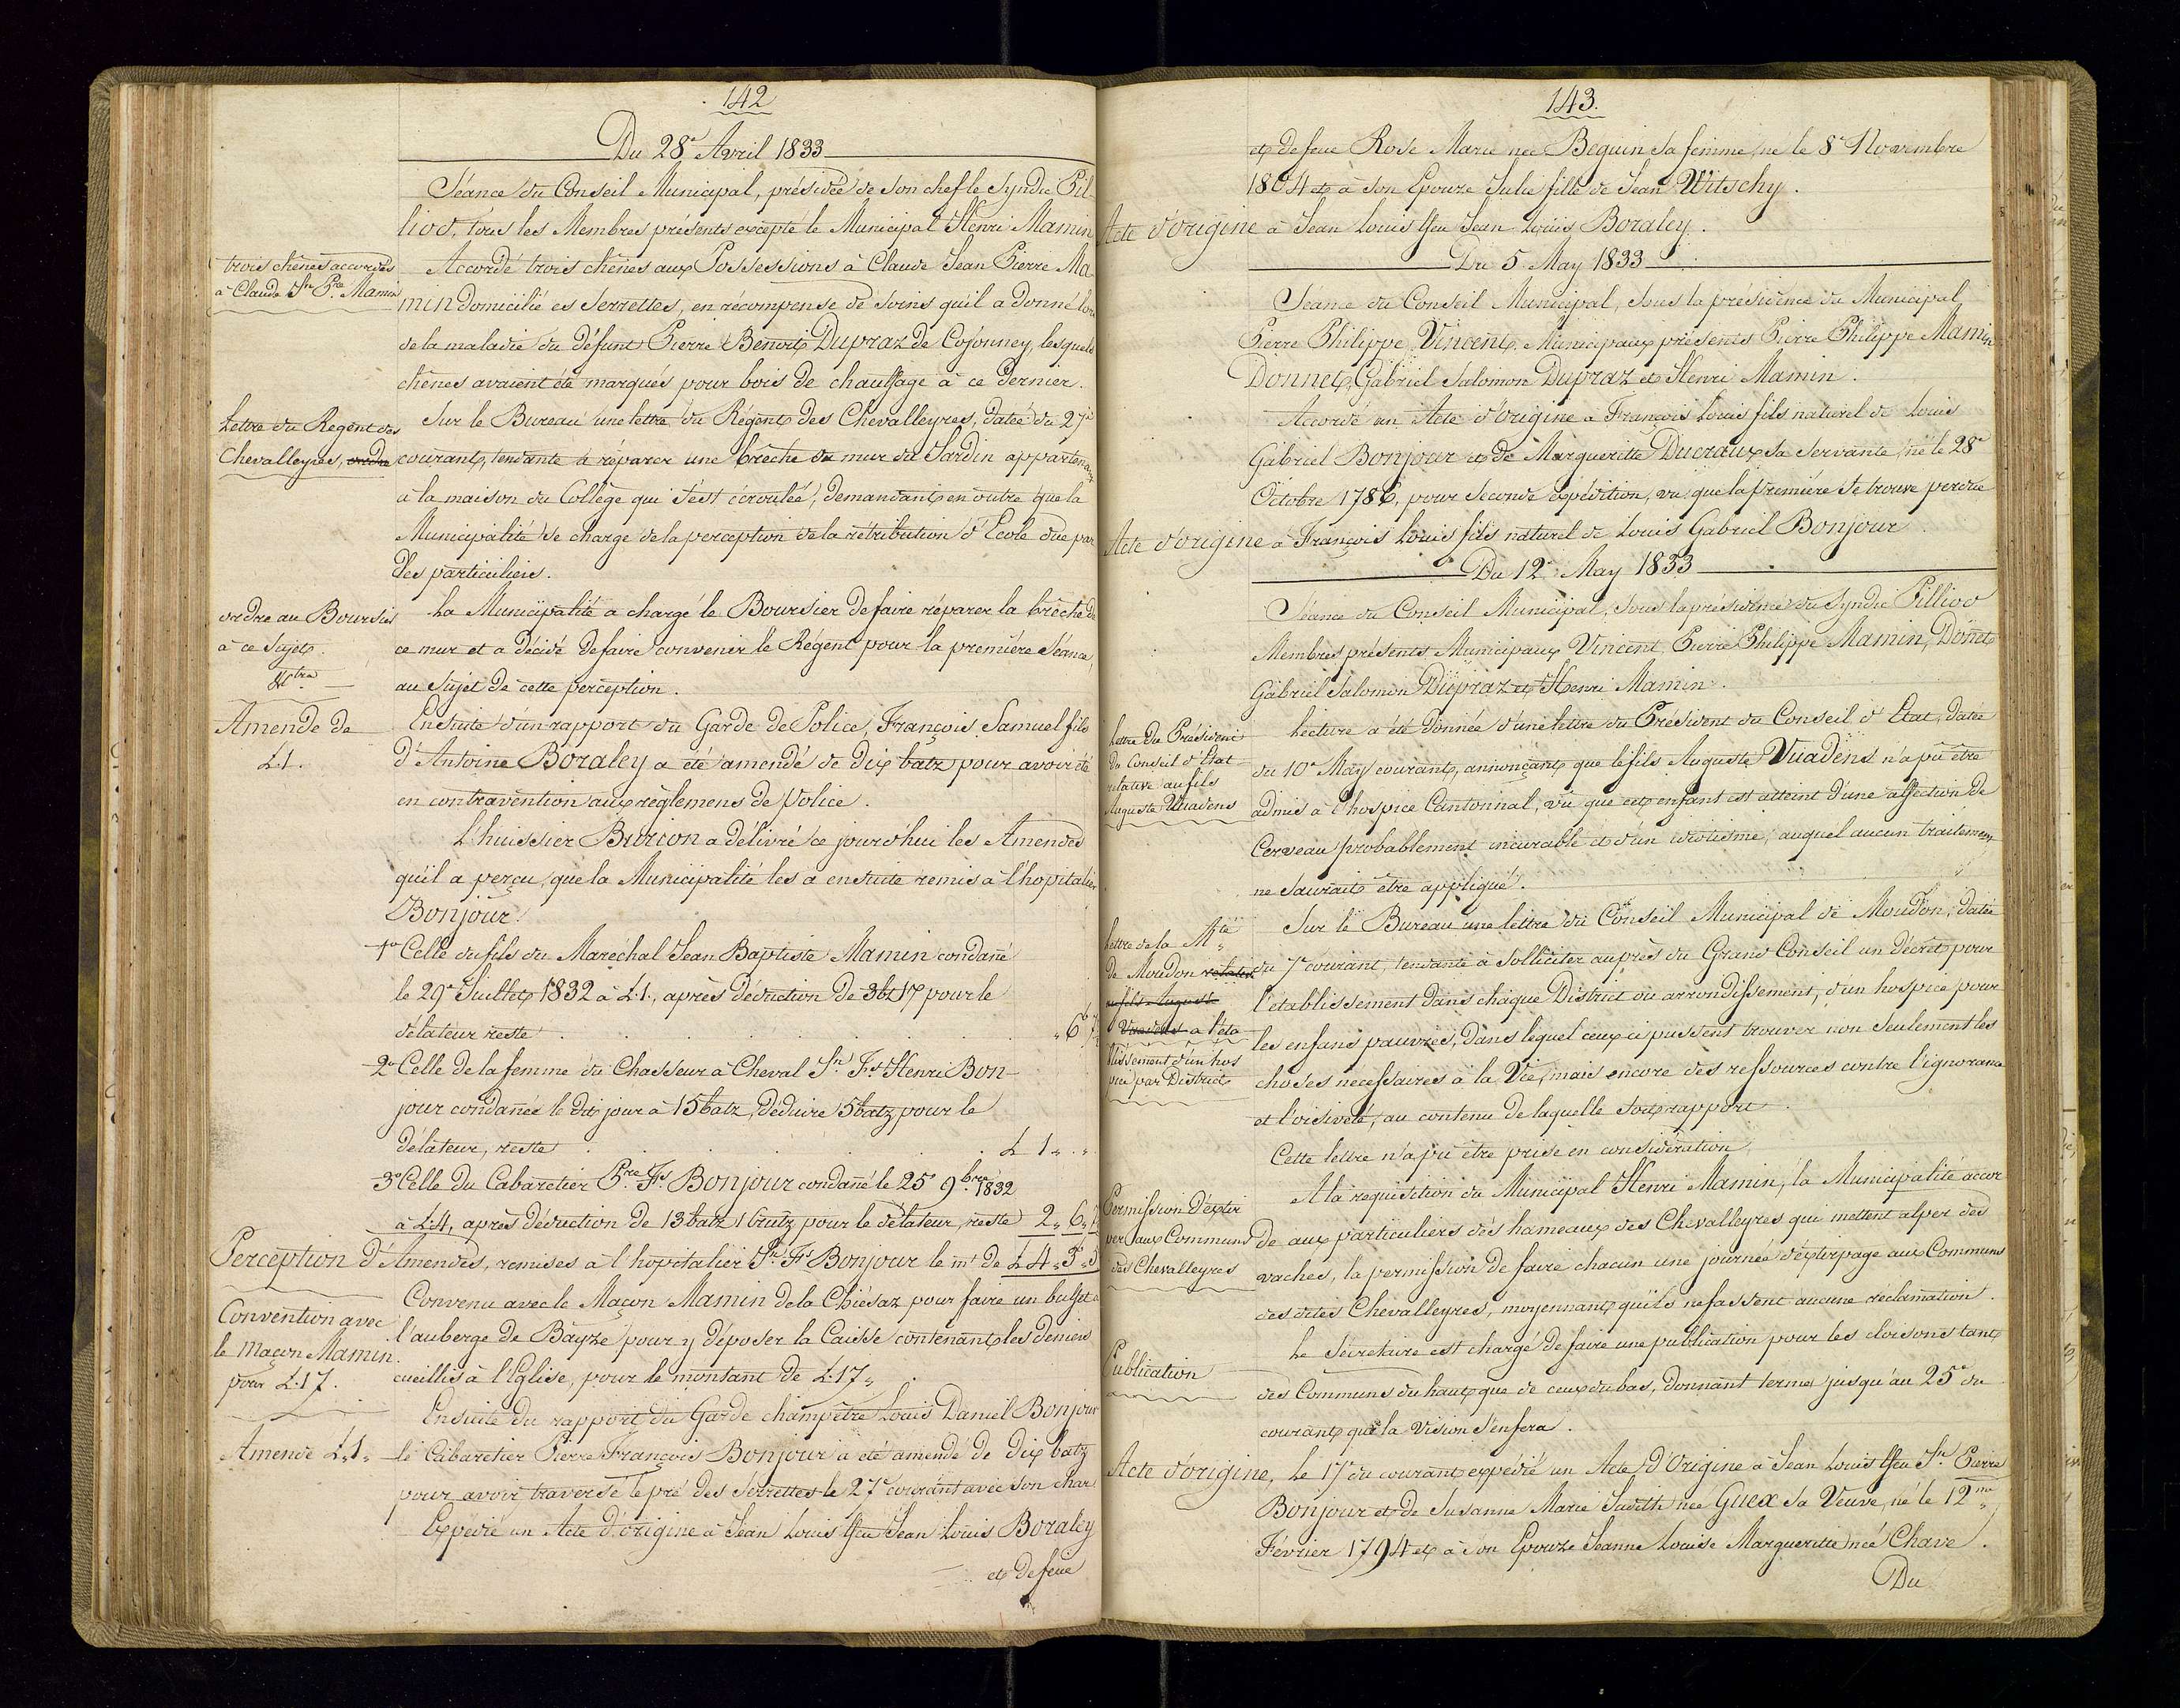 142
Du 28.e Avril 1833
Séance du Conseil Municipal, présidée de son chef le Syndic Pil-
liod, tous les Membres présents excepté le Municipal Henri Mamin
trois chênes accordés
à Claude Jn Pre Mamin
Accordé trois chênes aux Possessions à Claude Jean Pierre Ma-
min domicilié es Serrettes, en récompense de soins qu'il a donné lors
de la maladie du défunt Pierre Benoit Dupraz de Cojonney, lesquels
chênes avaient été marqués pour bois de chauffage à ce dernier.
Lettre du Regent des
Chevalleyres,
Sur le Bureau une lettre du Régent des Chevalleyres, datée du 27e
courant, tendante à réparer une brêche du mur du Jardin appartenant
à la maison du Collège qui s'est écroulée, demandant en outre que la
Municipalité se charge de la perception de la rétribution d'Ecole due par
des particuliers.
ordre au Boursier
à ce sujet.
La Municipalité a chargé le Boursier de faire réparer la brêche de
ce mur et a décidé de faire convenir le Régent pour la première Séance,
au sujet de cette perception.
Amende de
L.1.
Ensuite d'un rapport du Garde de Police, François Samuel fils
d'Antoine Boraley a été amendé de dix batz pour avoir été
en contravention aux règlemens de Police.
L'huissier Burion a délivré ce jourd'hui les Amendes
qu'il a perçu, que la Municipalité les a ensuite remis à l'hopitalier
Bonjour.
1o Celle du fils du Maréchal Jean Baptiste Mamin condañé
le 29e Juillet 1832 à L.1., après déduction de 3bz 17 pour le
délateur reste . . . . . „ 6
2o Celle de la femme du Chasseur à Cheval Jn Fs Henri Bon-
jour condañée le dit jour à 15 batz, déduire 5 batz pour le
délateur, reste . . . . . L 1 „ „
3o Celle du Cabaretier Pre Fs Bonjour condañé le 25e 9bre 1832
à L.4, après déduction de 13 batz 1 crutz pour le délateur, reste 2 „ 6 „
Perception d'Amendes, remises à l'hopitalier Jn Fs Bonjour le mt de L 4 „ 3 „
Convention avec
le Maçon Mamin.
pour L.17.
Convenu avec le Maçon Mamin de la Chiésaz pour faire un buffet à
l'auberge de Bayze pour y déposer la Caisse contenant les deniers
cueillis à l'Eglise, pour le montant de L.17 „
Amende L „ 1 „
Ensuite du rapport du Garde champêtre Louis Daniel Bonjour
le Cabaretier Pierre François Bonjour a été amendé de dix batz
pour avoir traversé le pré des Serrettes le 27e courant avec son char
Expédié un Acte d'origine à Jean Louis ffeu Jean Louis Boraley
et de feue
143.
et de feue Rose Marie née Beguin sa femme, né le 8e Novembre
1804 et à son Epouze Julie fille de Jean Witschy.
Acte d'origine à Jean Louis ffeu Jean Louis Boraley.
Du 5 May 1833
Séance du Conseil Municipal, sous la présidence du Municipal
Pierre Philippe Vincent. Municipaux présents Pierre Philippe Mamin
Donnet, Gabriel Salomon Dupraz et Henri Mamin.
Accordé un Acte d'origine à François Louis fils naturel de Louis
Gabriel Bonjour et de Marguerite Ducraux sa servante, né le 28e
Octobre 1786, pour seconde expédition, vu que la première se trouve perdue
Acte d'origine à François Louis fils naturel de Louis Gabriel Bonjour
Du 12e May 1833
Séance du Conseil Municipal, sous la présidence du Syndic Pilliod
Membres présents Municipaux Vincent, Pierre Philippe Mamin, Donnet
Gabriel Salomon Dupraz et Henri Mamin.
Lettre du Président
du Conseil d'État
relative au fils
Auguste Vuadens
Lecture a été donnée d'une lettre du Président du Conseil d'Etat, datée
du 10e May courant, annonçant que le fils Auguste Vuadens n'a pû être
admis à l'hospice Cantonnal, vû que cet enfant est atteint d'une affection de
Cerveau probablement incurable et d'un idiotisme, auquel aucun traitement
ne saurait être appliqué.
Lettre de la Mté
de Moudon relative
au fils Auguste
Vuadens à l'éta
blissement d'un hos
pice par District
Sur le Bureau une lettre du Conseil Municipal de Moudon, datée
du 7e courant, tendante à solliciter auprès du Grand Conseil un décret pour
l'etablissement dans chaque District ou arrondissement, d'un hospice pour
les enfans pauvres, dans lequel ceux ci pussent trouver non seulement les
choses necessaires à la Vie, mais encore des ressources contre l'ignorance
et l'oisiveté, au contenu de laquelle soit rapport.
Cette lettre n'a pû être prise en considération
Permission d'extir
per aux Communs
des Chevalleyres
A la requisition du Municipal Henri Mamin, la Municipalité accor
de aux particuliers des hameaux des Chevalleyres qui mettent alper des
vaches, la permission de faire chacun une journée d'extirpage aux Communs
des dites Chevalleyres, moyennant qu'ils ne fassent aucune réclamation.
Publication
Le Secretaire est chargé de faire une publication pour les cloisons tant
des Communs du haut que de ceux du bas, donnant terme jusqu'au 25e du
courant que la vision s'en fera.
Acte d'origine, Le 17e du courant expédié un Acte d'Origine à Jean Louis ffeu Jn Pierre
Bonjour et de Susanne Marie Judith née Guex sa Veuve, né le 12me
Février 1794 et à son Epouze Jeanne Louise Marguerite née Chave.
Du